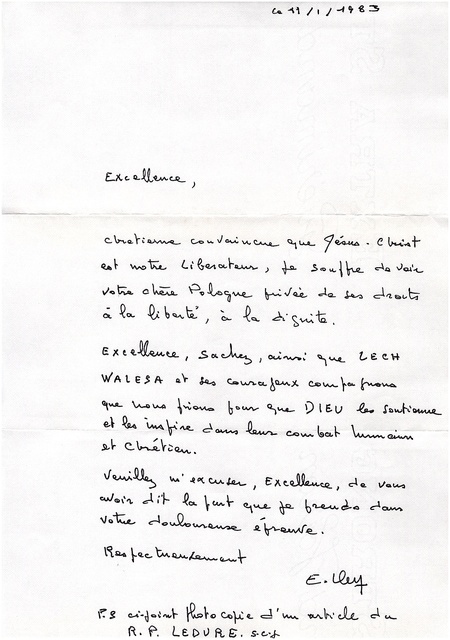 Le 11/1/1983
Excellence,
chrétienne convaincue que Jésus-Christ
est notre Libérateur, je souffre de voir
votre chère Pologne privée de ses droits
à la liberté, à la dignité.
Excellence, sachez, ainsi que LECH
WALESA et ses courageux compagnons
que nous prions pour que DIEU les soutienne
et les inspire dans leur combat humain
et chrétien.
Veuillez m'excuser, Excellence, de vous
avoir dit la part que je prends dans
votre douloureuse épreuve.
Respectueusement
E.
P.S ci-joint photocopie d'un article du
R.P. LEDURE. s.c.j